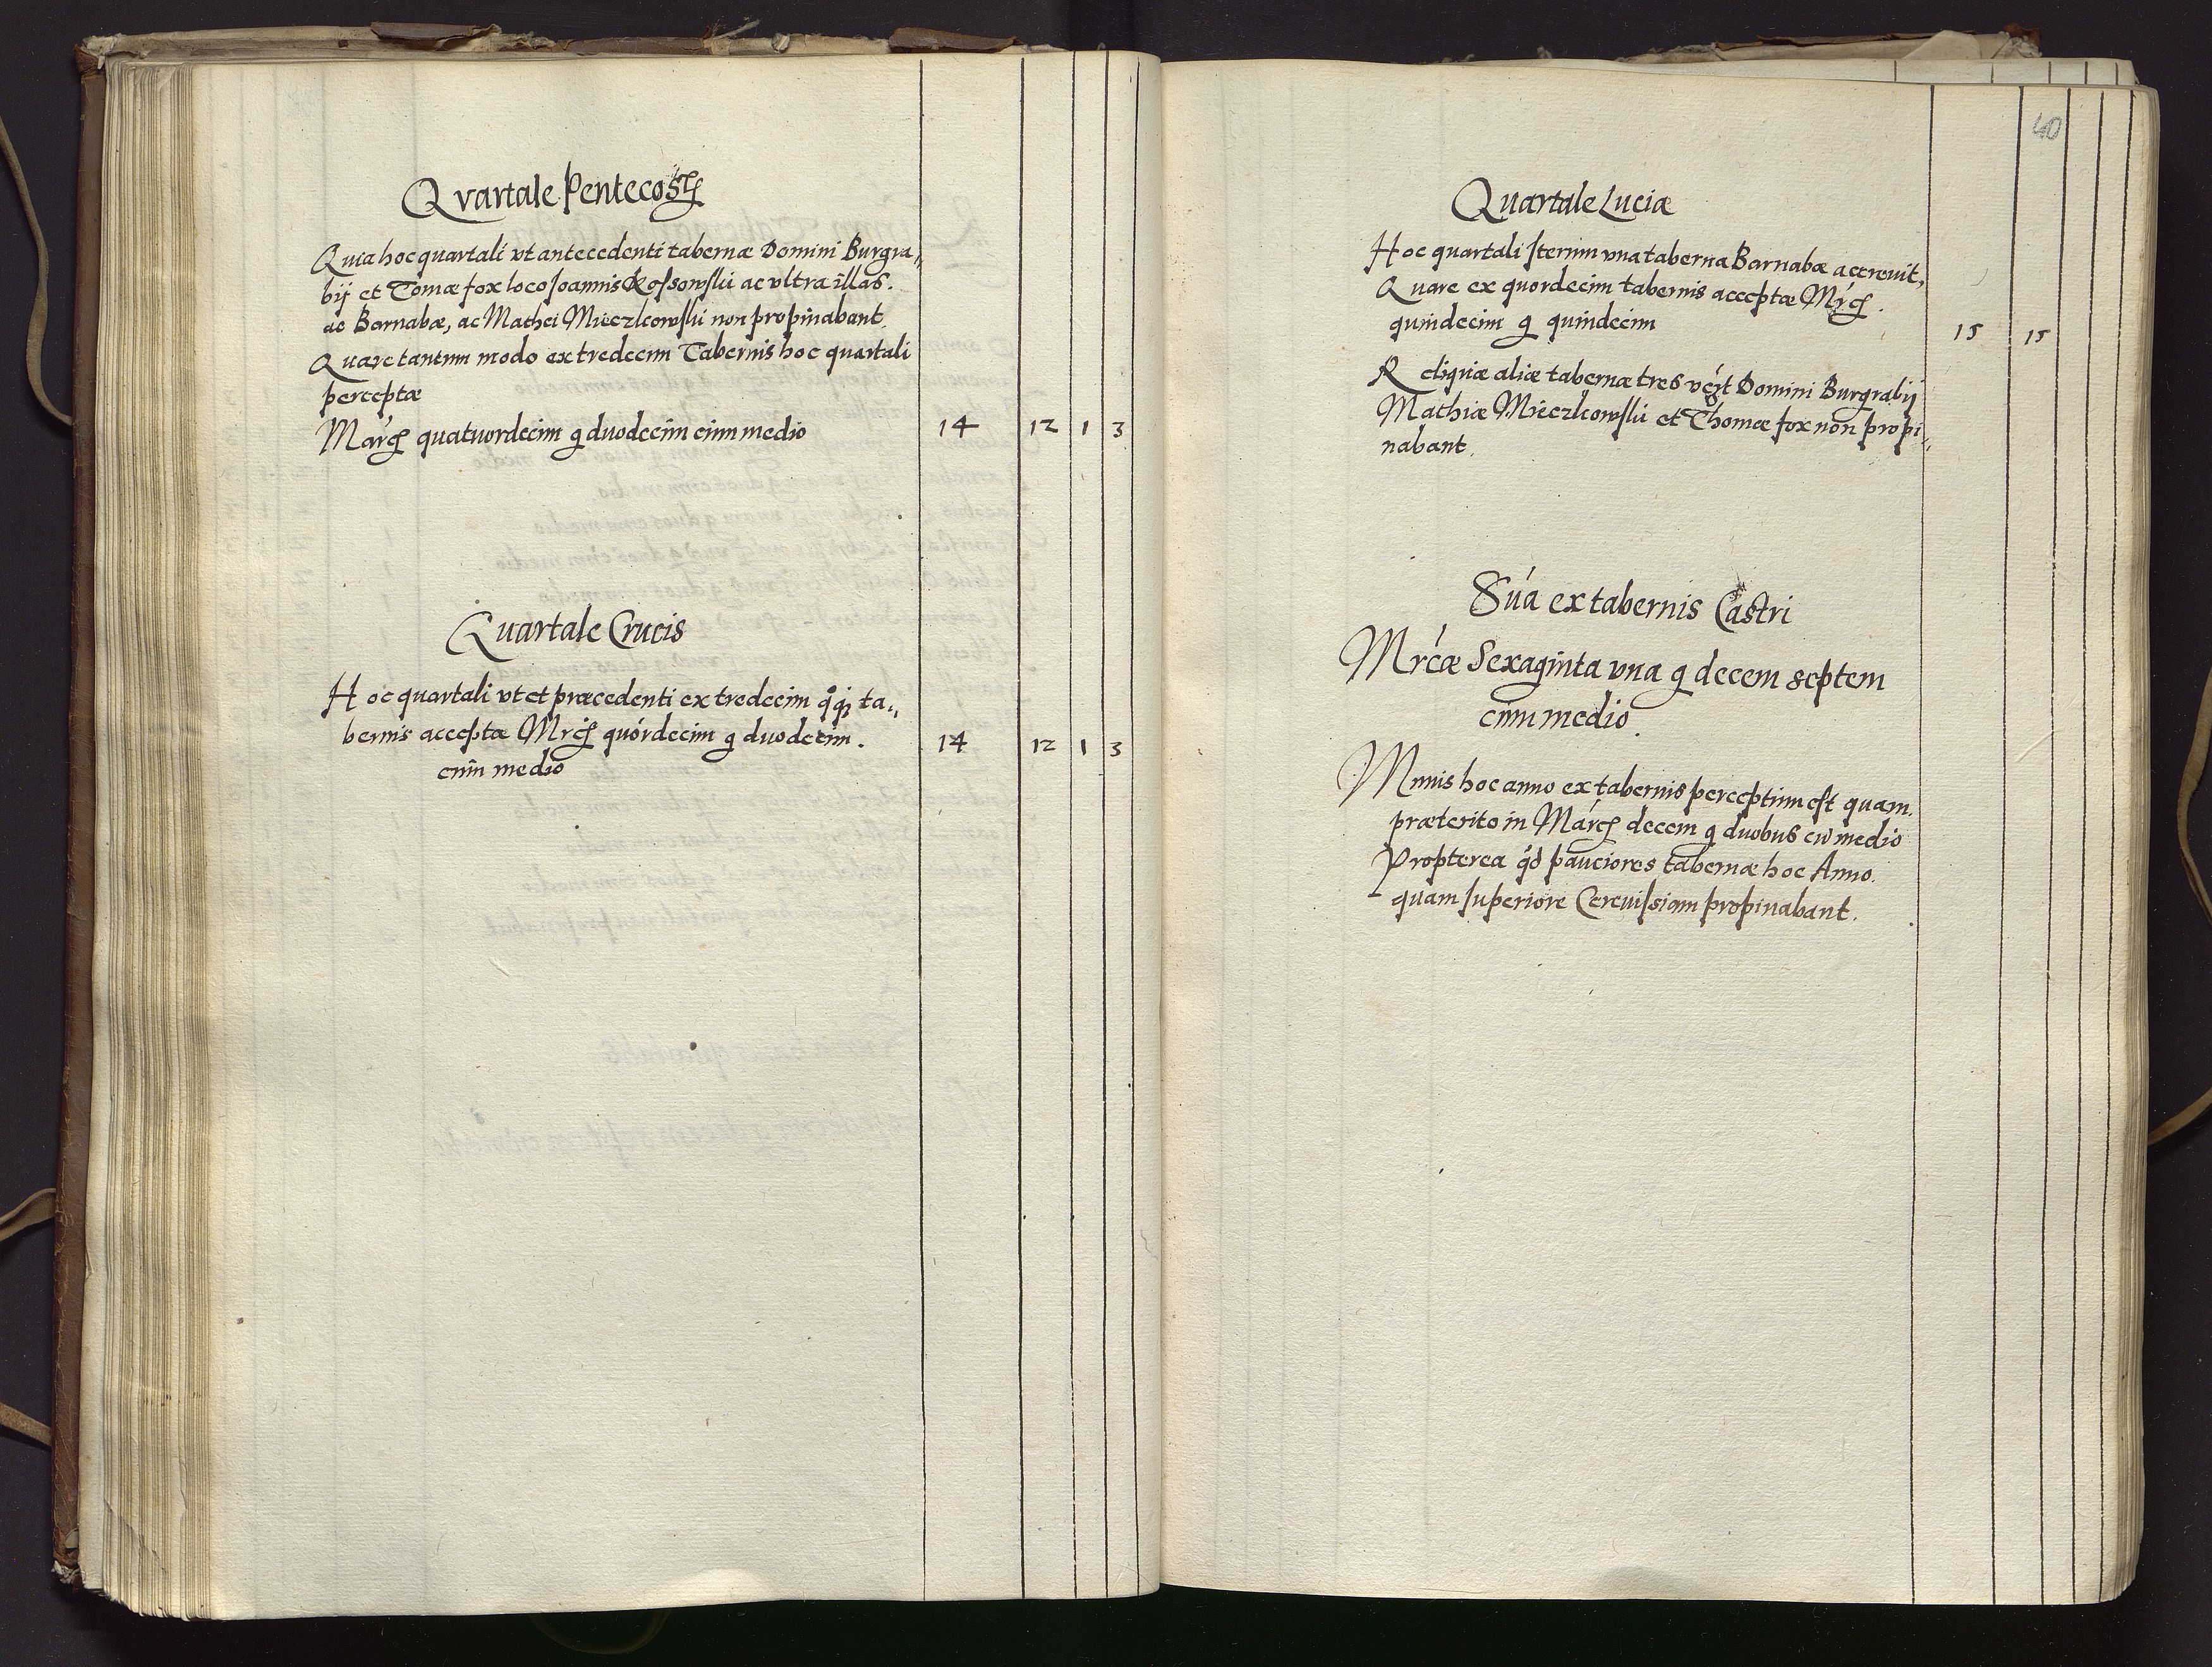 Qvartale Pentecostes
Quia hoc quartali vt antecedenti tabernæ Domini Burgra„
bij et Tomæ fox loco Joannis Kossowskii ac vltra illas.
ac Barnabæ, ac Mathei Mieczkowskii non propinabant.
Quare tantum modo ex tredecim Tabernis hoc quartali
perceptæ
Marcæ quatuordecim g duodecim cum medio 14 12 1 3
Quartale Crucis
Hoc quartali vt et præcedenti ex tredecim qq ta„
bernis acceptæ Mrcæ quordecim g duodecim. 14 12 1 3
cum medio
40
Quartale Luciæ
Hoc quartali iterum vna taberna Barnabæ accreuit,
Quare ex quordecim tabernis acceptæ Mrcæ.
quindecim g quindecim 15 15
Reliquæ aliæ tabernæ tres vdzt Domini Burgrabij
Mathiæ Mieczkowskii et Thomæ fox non propi„
nabant.
Sūa ex tabernis Castri
Mrcæ Sexaginta vna g decem septem
cum medio.
Minus hoc anno ex tabernis perceptum est quam.
præterito in Marcis decem g duobus cū medio
Propterea qd pauciores tabernæ hoc Anno.
quam superiore Cereuissiam propinabant.